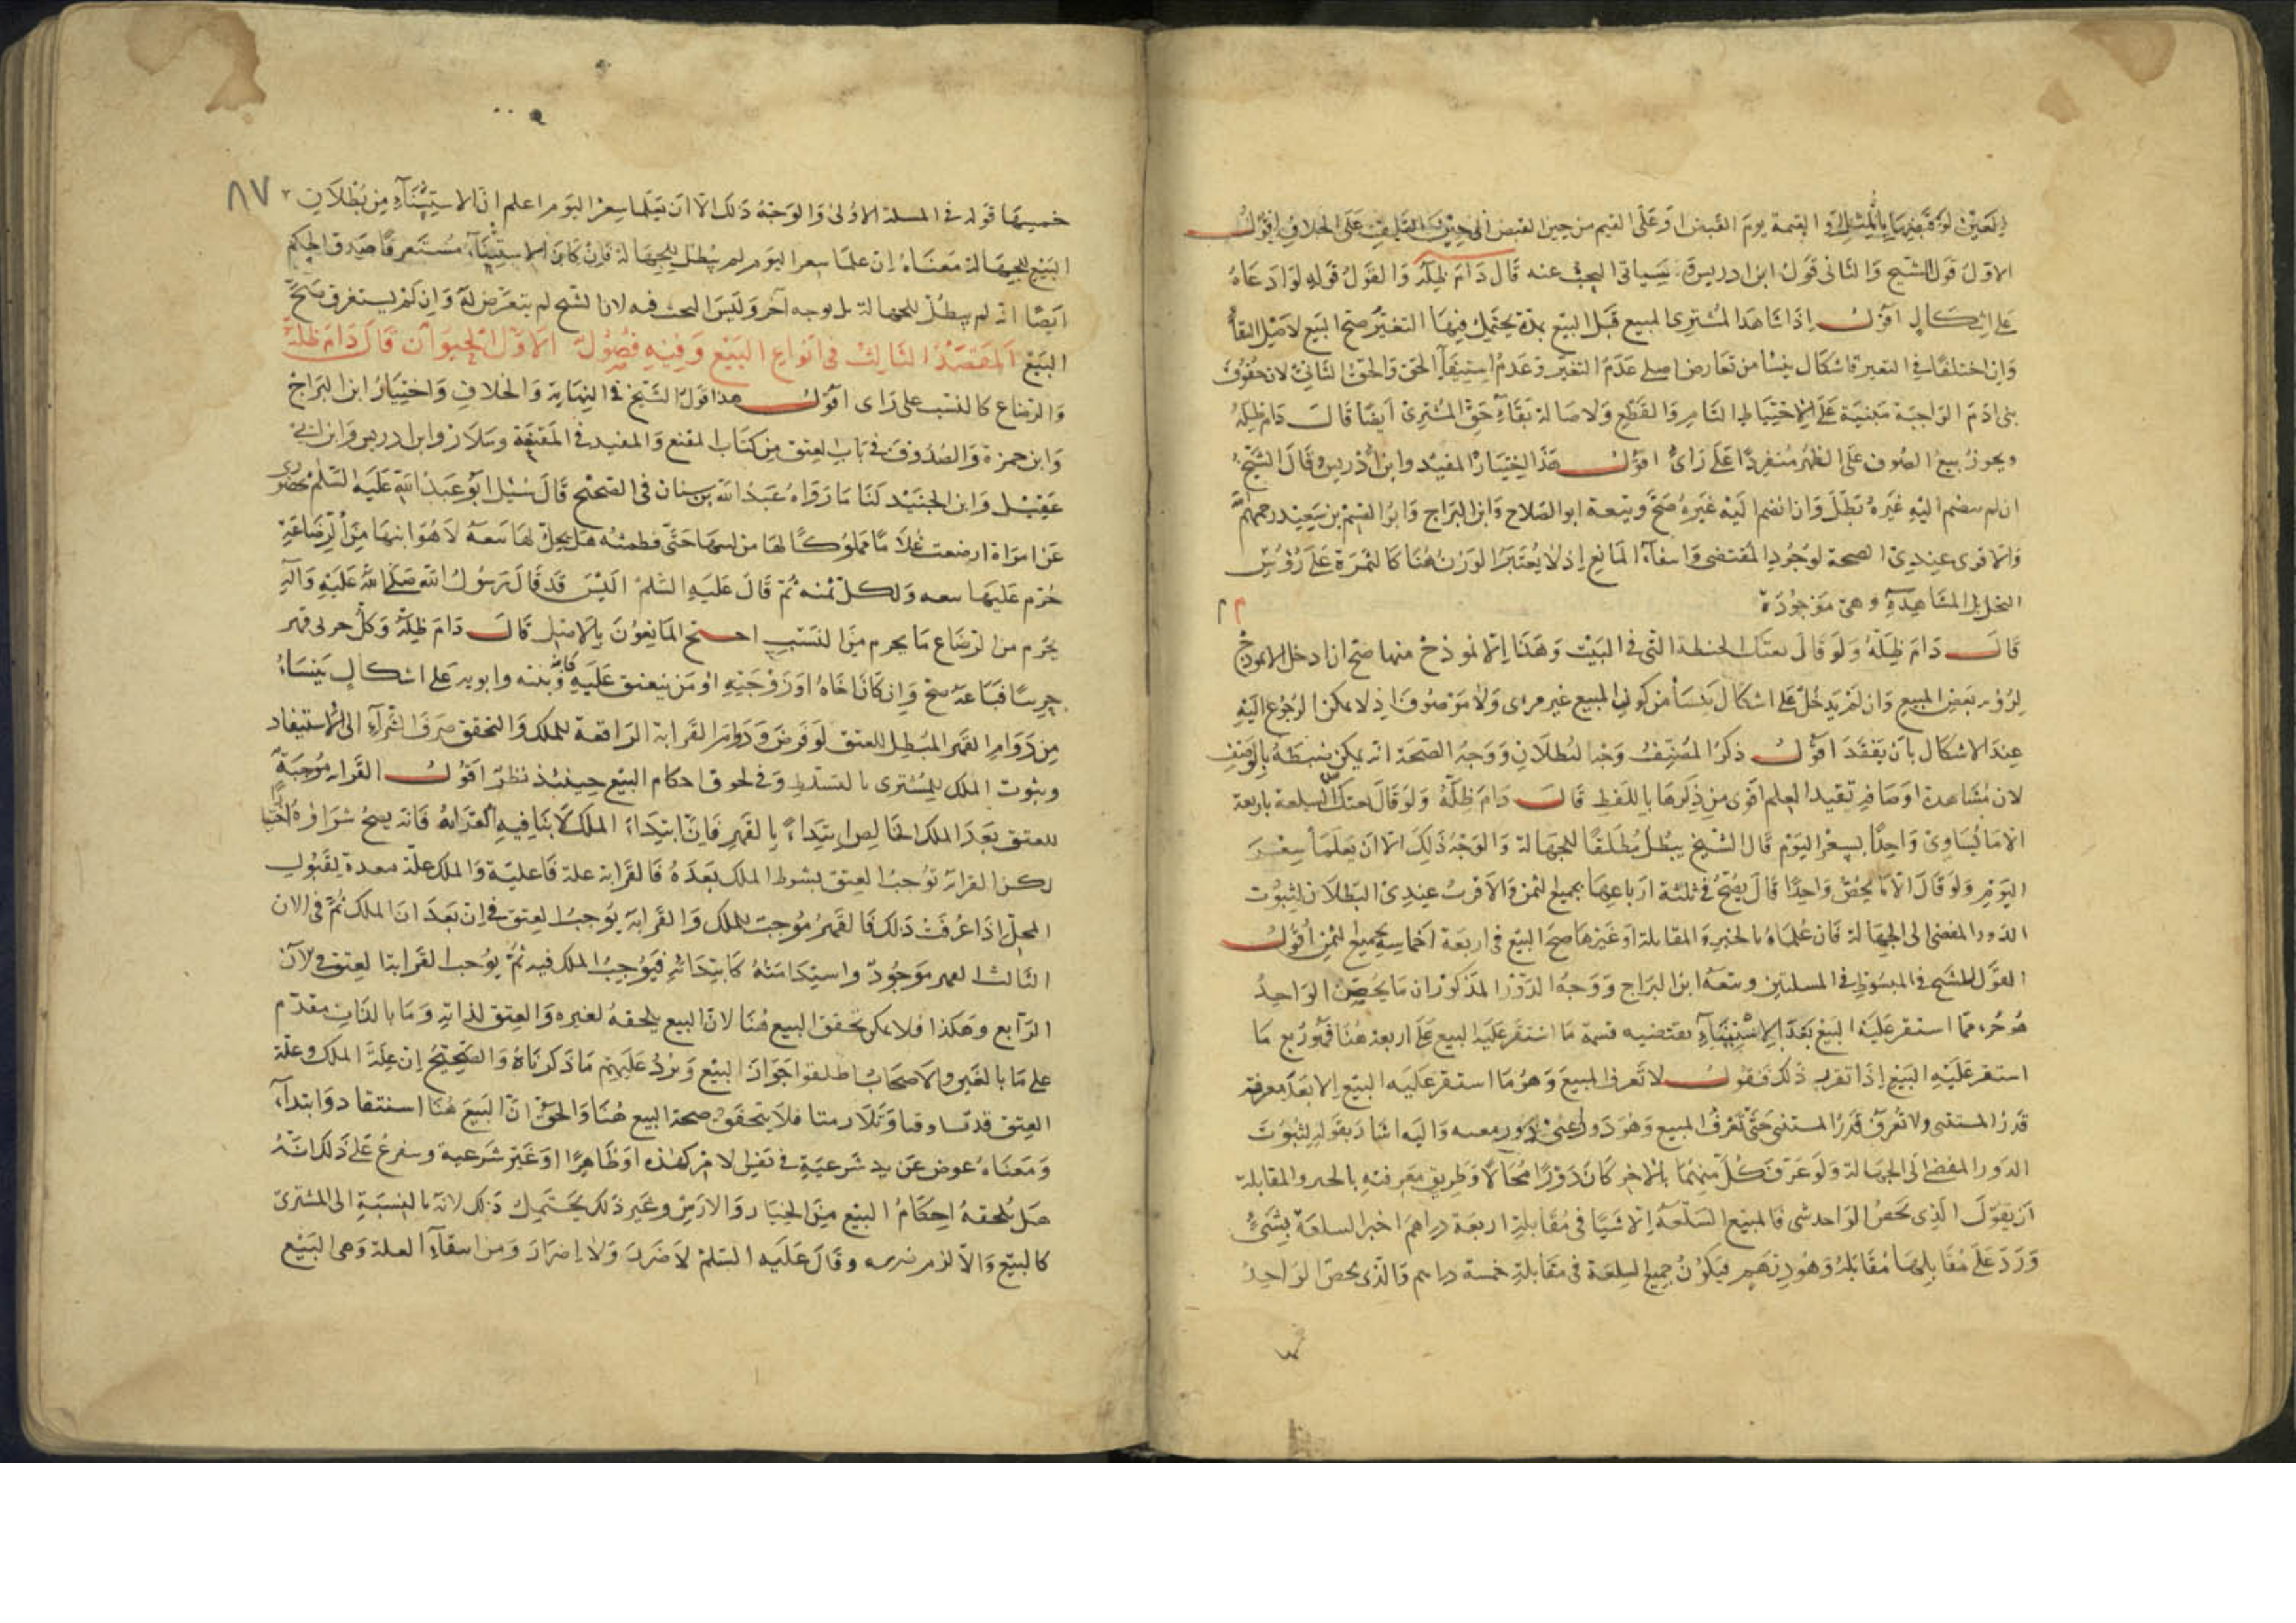 العين لو قبضها بالمثل او القيمة يوم القبض او على القيم من حين القبض الى حين التلف على الخلاف اقول
الاول قول الشيخ والثانى قول ابن ادريس وسياتى البحث عنه قال دام ظله والقول قوله لو ادعاه
على اشكال اقول اذا شاهد المشترى المبيع قبل البيع بمدة يحتمل فيها التغير صح البيع لاصل البقا
وان اختلفا فى التغير فاشكال ينشا من تعارض اصلى عدم التغير وعدم استيفآء الحق والحق الثانى لان حقوق
بنى ادم الواجبة مبنية على الاحتياط التام والقطع ولاصالة بقاء حق المشترى ايضا قال دام ظله
ويجوز بيع الصوف على الظهر منفردا على راى اقول هذا اختيار المفيد وابن ادريس قال الشيخ
ان لم ينضم اليه غيره بطل وان انضم اليه غيره صح وتبعه ابو الصلاح وابن البراج رحمهم الله
والاقوى عندى الصحة لوجود المقتضى وانتفاء المانع اذ لا يعتبر الوزن هنا كالثمرة على رؤس
النخل بل المشاهدة وهى موجودة
قال دام ظله ولو قال بعتك الحنطة التى فى البيت وهذا الانموذج منها صح ان ادخل الانموذج
لرؤية بعض المبيع وان لم يدخل على اشكال ينشأ من كون المبيع غير مرى ولا موصوف اذ لا يمكن الرجوع اليه
عند الاشكال بان يفقد اقول ذكر المصنف وجه البطلان ووجه الصحة انه يمكن ضبطه بالوصف
لان مشاهدة اوصافه تفيد العلم اقوى من ذكرها باللفظ قال دام ظله ولو قال بعتك السلعة باربعة
الا ما يساوى واحدا بسعر اليوم قال الشيخ يبطل مطلقا للجهالة والوجه ذلك الا ان يعلما سعر
اليوم ولو قال الا ما يخص واحدا قال يصح فى ثلثة ارباعها بجميع الثمن والاقرب عندى البطلان لثبوت
الدور المفضى الى الجهالة فان علماه بالجبر والمقابلة او غيرها صح البيع فى اربعة اخماسه بجميع الثمن اقول
القول للشيخ فى المبسوط فى المسلتين وتبعه ابن البراج ووجه الدور المذكور ان ما يخص الواحد
هو جزء مما استقر عليه البيع بعد الاستثناء يقتضيه قسمة ما استقر عليه البيع على اربعة هنا فهو ربع ما
استقر عليه البيع اذا تقرر ذلك فنقول لا تعرف المبيع وهو ما استقر عليه البيع الا بعد معرفة
قدر المستثنى ولا تعرف قدر المستثنى حتى تعرف المبيع وهو دور واليه اشار بقوله لثبوت
الدور المفضى الى الجهالة ولو عرف كل منهما بالاخر كان دورا محالا وطريق معرفته بالجبر والمقابلة
ان يقول الذى يخص الواحد شى فالمبيع السلعة الا شيئا فى مقابلة اربعة دراهم اجبر السلعة بشئ
وزد على مقابلها مقابله وهو درهم فيكون جميع السلعة فى مقابلة خمسة دراهم والذى يخص الواحد
٨٧
خمسها قوله فى المسلة الاولى والوجه ذلك الا ان يعلما سعر اليوم اعلم ان الاستثناء من بطلان
البيع للجهالة معناه ان علما سعر اليوم لم يبطل للجهالة فان كان الاستثناء مستغرقا صدق الحكم
ايضا انه لم يبطل للجهالة بل بوجه آخر وليس البحث فيه لان الشيخ لم يتعرض له وان لم يستغرق صح
البيع المقصد الثالث فى انواع البيع وفيه فصول الاول الحيوان قال دام ظله
والرضاع كالنسب على راى اقول هذا قول الشيخ فى النهاية والخلاف واختيار ابن البراج
وابن حمزة والصدوق فى باب العتق من كتاب المقنع والمفيد فى المقنعة وسلار وابن ادريس وابن ابى
عقيل وابن الجنيد لنا ما رواه عبد الله بن سنان فى الصحيح قال سئل ابو عبد الله عليه السلم
عن امراة ارضعت غلاما مملوكا لها من لبنها حتى فطمته هل يحل لها بيعه لا هو ابنها من الرضاعة
حرم عليها بيعه واكل ثمنه ثم قال عليه السلم اليس قد قال رسول الله صلى الله عليه وآله
يحرم من الرضاع ما يحرم من النسب احتج المانعون بالاصل قال دام ظله وكل حربى قهر
حربيا فباعه صح وان كان اخاه او زوجته او من ينعتق عليه كابنه وبنته وابويه على اشكال ينشأ
من دوام القهر المبطل للعتق لو فرض ودوام القرابة الرافعة للملك والتحقيق صرف الشرآء الى الاستنقاذ
وثبوت الملك للمشترى بالتسلط وفى لحوق احكام البيع حينئذ نظر اقول القرابة موجبة
للعتق بعد الملك الخالص ابتداء بالقهر فان ابتداء الملك لا ينافيه القرابة فانه يصح شراؤه
لكن القرابة توجب العتق بشرط الملك بعده فالقرابة علة فاعلية والملك علة معدة لقبول
المحل اذا عرفت ذلك فالقهر موجب للملك والقرابة يوجب العتق فى ان بعد ان الملك ثم فى الان
الثالث القهر موجود واستدامته كابتدائه فيوجب الملك فيه ثم يوجب القرابة العتق فى لآن
الرابع وهكذا فلا يمكن تحقق البيع هنا لان البيع يلحقه لغيره والعتق لذاته وما بالذات مقدم
على ما بالغير والاصحاب اطلقوا جواز البيع ويرد عليهم ما ذكرناه والصحيح ان علة الملك وعلة
العتق قد تساوقا وتلازمتا فلا يتحقق صحة البيع هنا والحق ان البيع هنا استنقاذ وابتداء
ومعناه عوض عن يد شرعية فى نفس الامر كهذه او ظاهرا او غير شرعية وسفرع على ذلك انه
هل يلحقه احكام البيع من الخيار والارش وغير ذلك يحتمل ذلك لانه بالنسبة الى المشترى
كالبيع والا لزم ضرره وقال عليه السلم لا ضرر ولا اضرار ومن انتفآء العلة وهى البيع